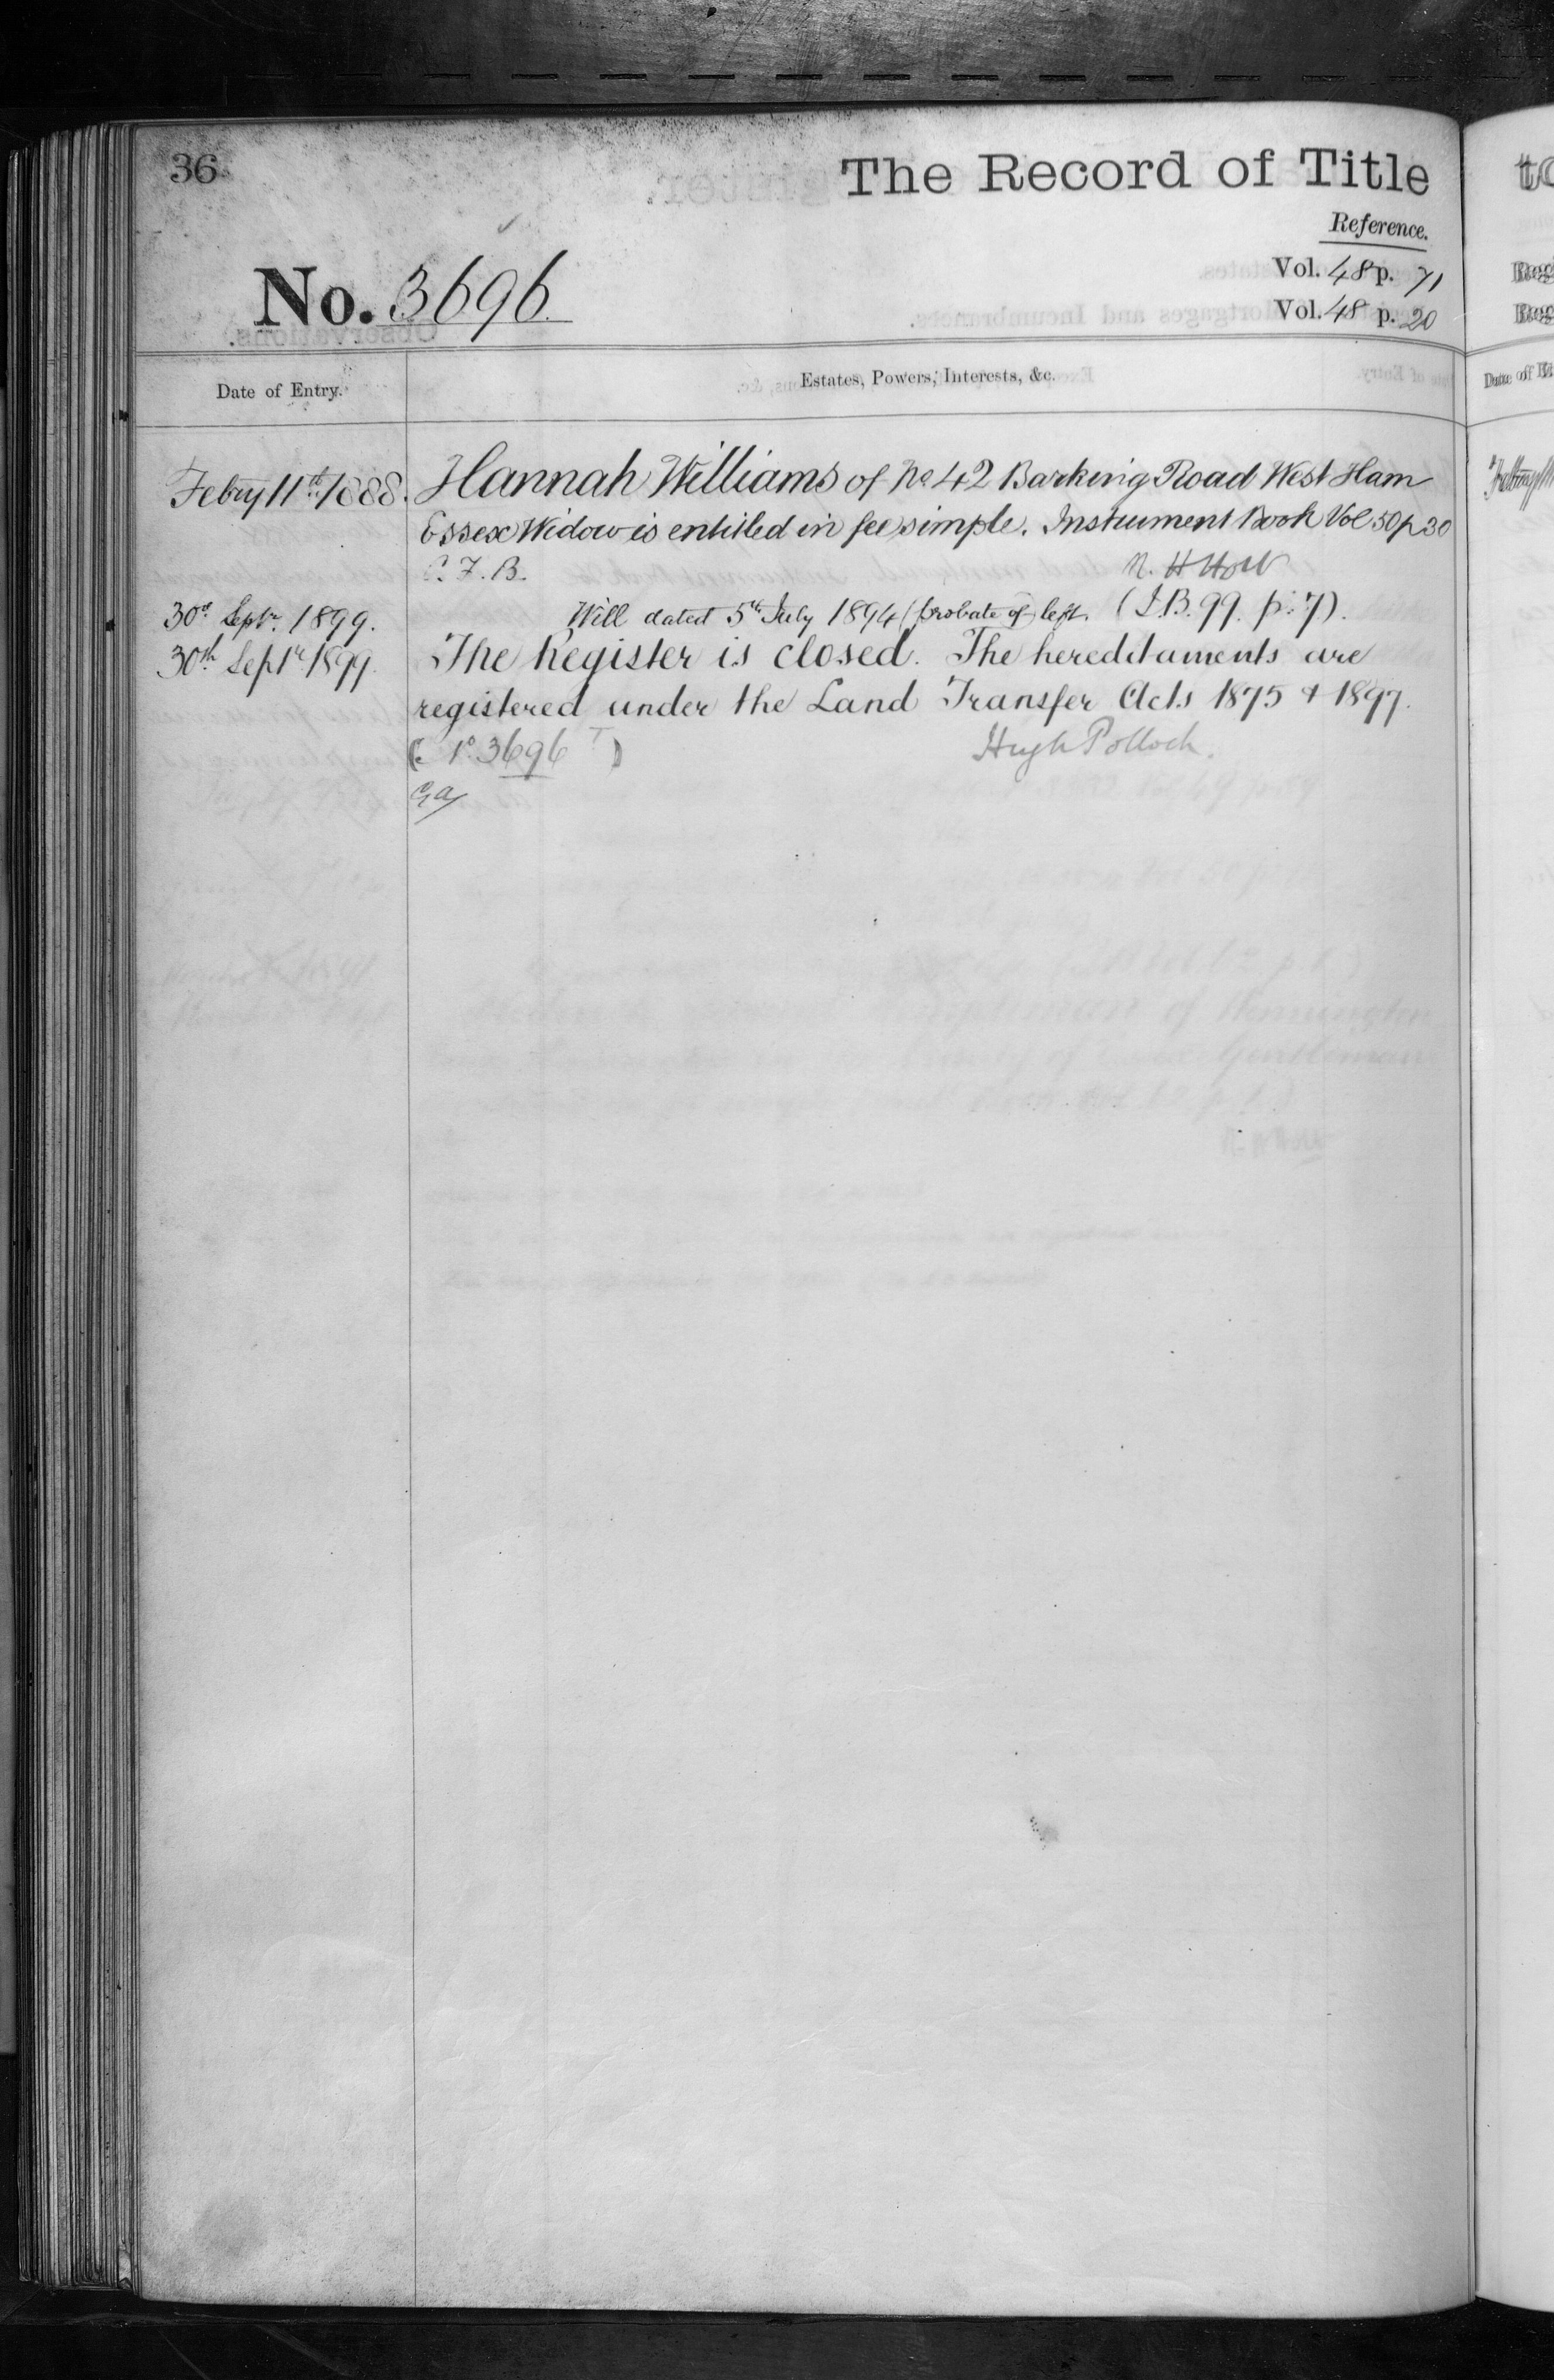 36
The Record of Title
Reference.
Vol. 48 p. 71
No. 3696.
Vol. 48 p. 20
Date of Entry.
Estates, Powers, Interests, &c.
Febry 11th 1888. Hannah Williams of No 42 Barking Road West Ham
Essex Widow is entitled in fee simple. Instrument Book Vol 50 p 30
C. F. B. N. H Holt
30th Septr. 1899. Will dated 5th July 1894 (probate of) left. (I.B. 99. p. 7).
30th Septr 1899. The Register is closed. The hereditaments are
registered under the Land Transfer Acts 1875 & 1897.
(No. 3696 T) Hugh Pollock.